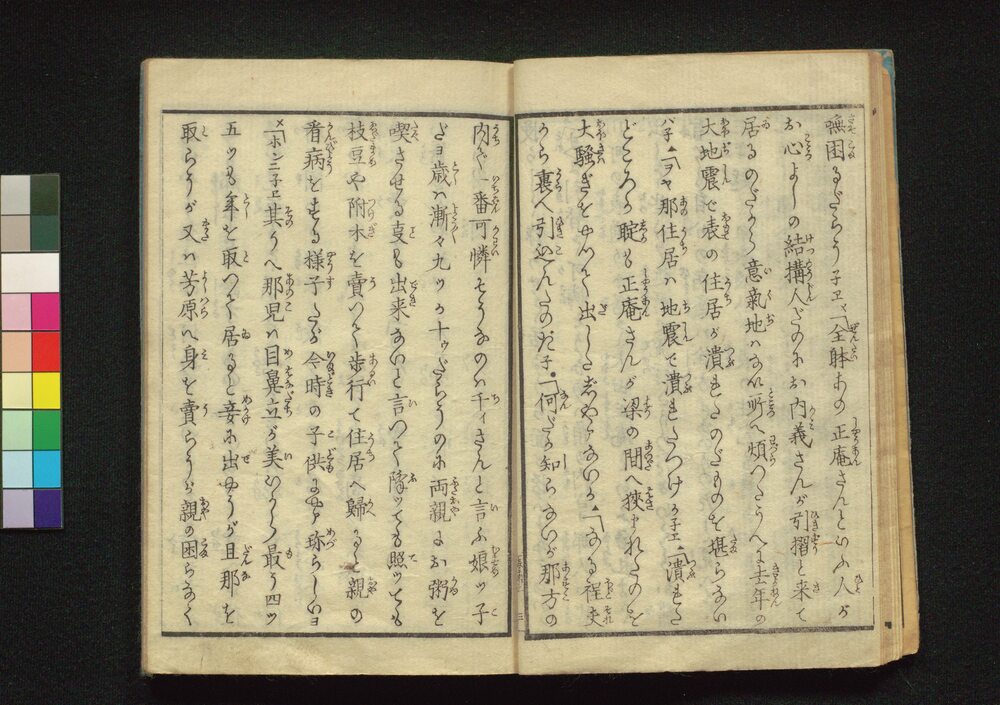 嘸困るだらう子エ「全躰あの正庵さんといふ人が
お心よしの結構人だのにお内義さんが引摺と来て
居るのだから意氣地はない所へ煩つたうへに去年の
大地震で表の住居が潰れたのだものを堪らない
ハ子「ヲヤ那住居は地震で潰れたつけか子エ「潰れた
どころか聢も正庵さんが梁の間へ狭まれたのを
大騒ぎをやつて出したぢやアないか「なる程夫
から裏へ引込んたのだ子「何だか知らないが那方の
内で一番可憐そうなのは千イさんと言ふ娘ツ子
だヨ歳は漸々九ツか十ヲだらうのに両親にお粥を
喫させる事も出来ないと言つて降ツても照ツても
枝豆や附木を賣つて歩行て住居へ歸ると親の
看病をする様子だが今時の子供にやア珎らしいヨ
「ホンニ子エ其うへ那児は目鼻立が美いから最う四ツ
五ツも年を取つて居ると妾に出やうが旦那を
取らうが又は芳原へ身を賣らうが親の困らなく